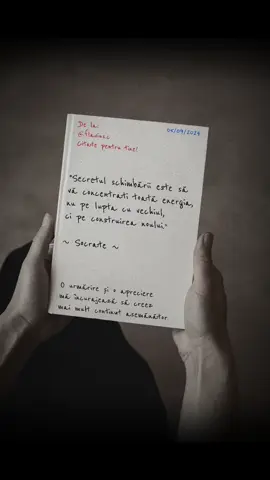 De la:
06/09/2024
citate pentru tine!
"Secretul schimbării este să
vă concentrați toată energia,
nu pe lupta cu vechiul,
ci pe construirea noului."
~ Socrate ~
O urmărire și o apreciere
mă încurajează să creez
mai mult conținut asemănător